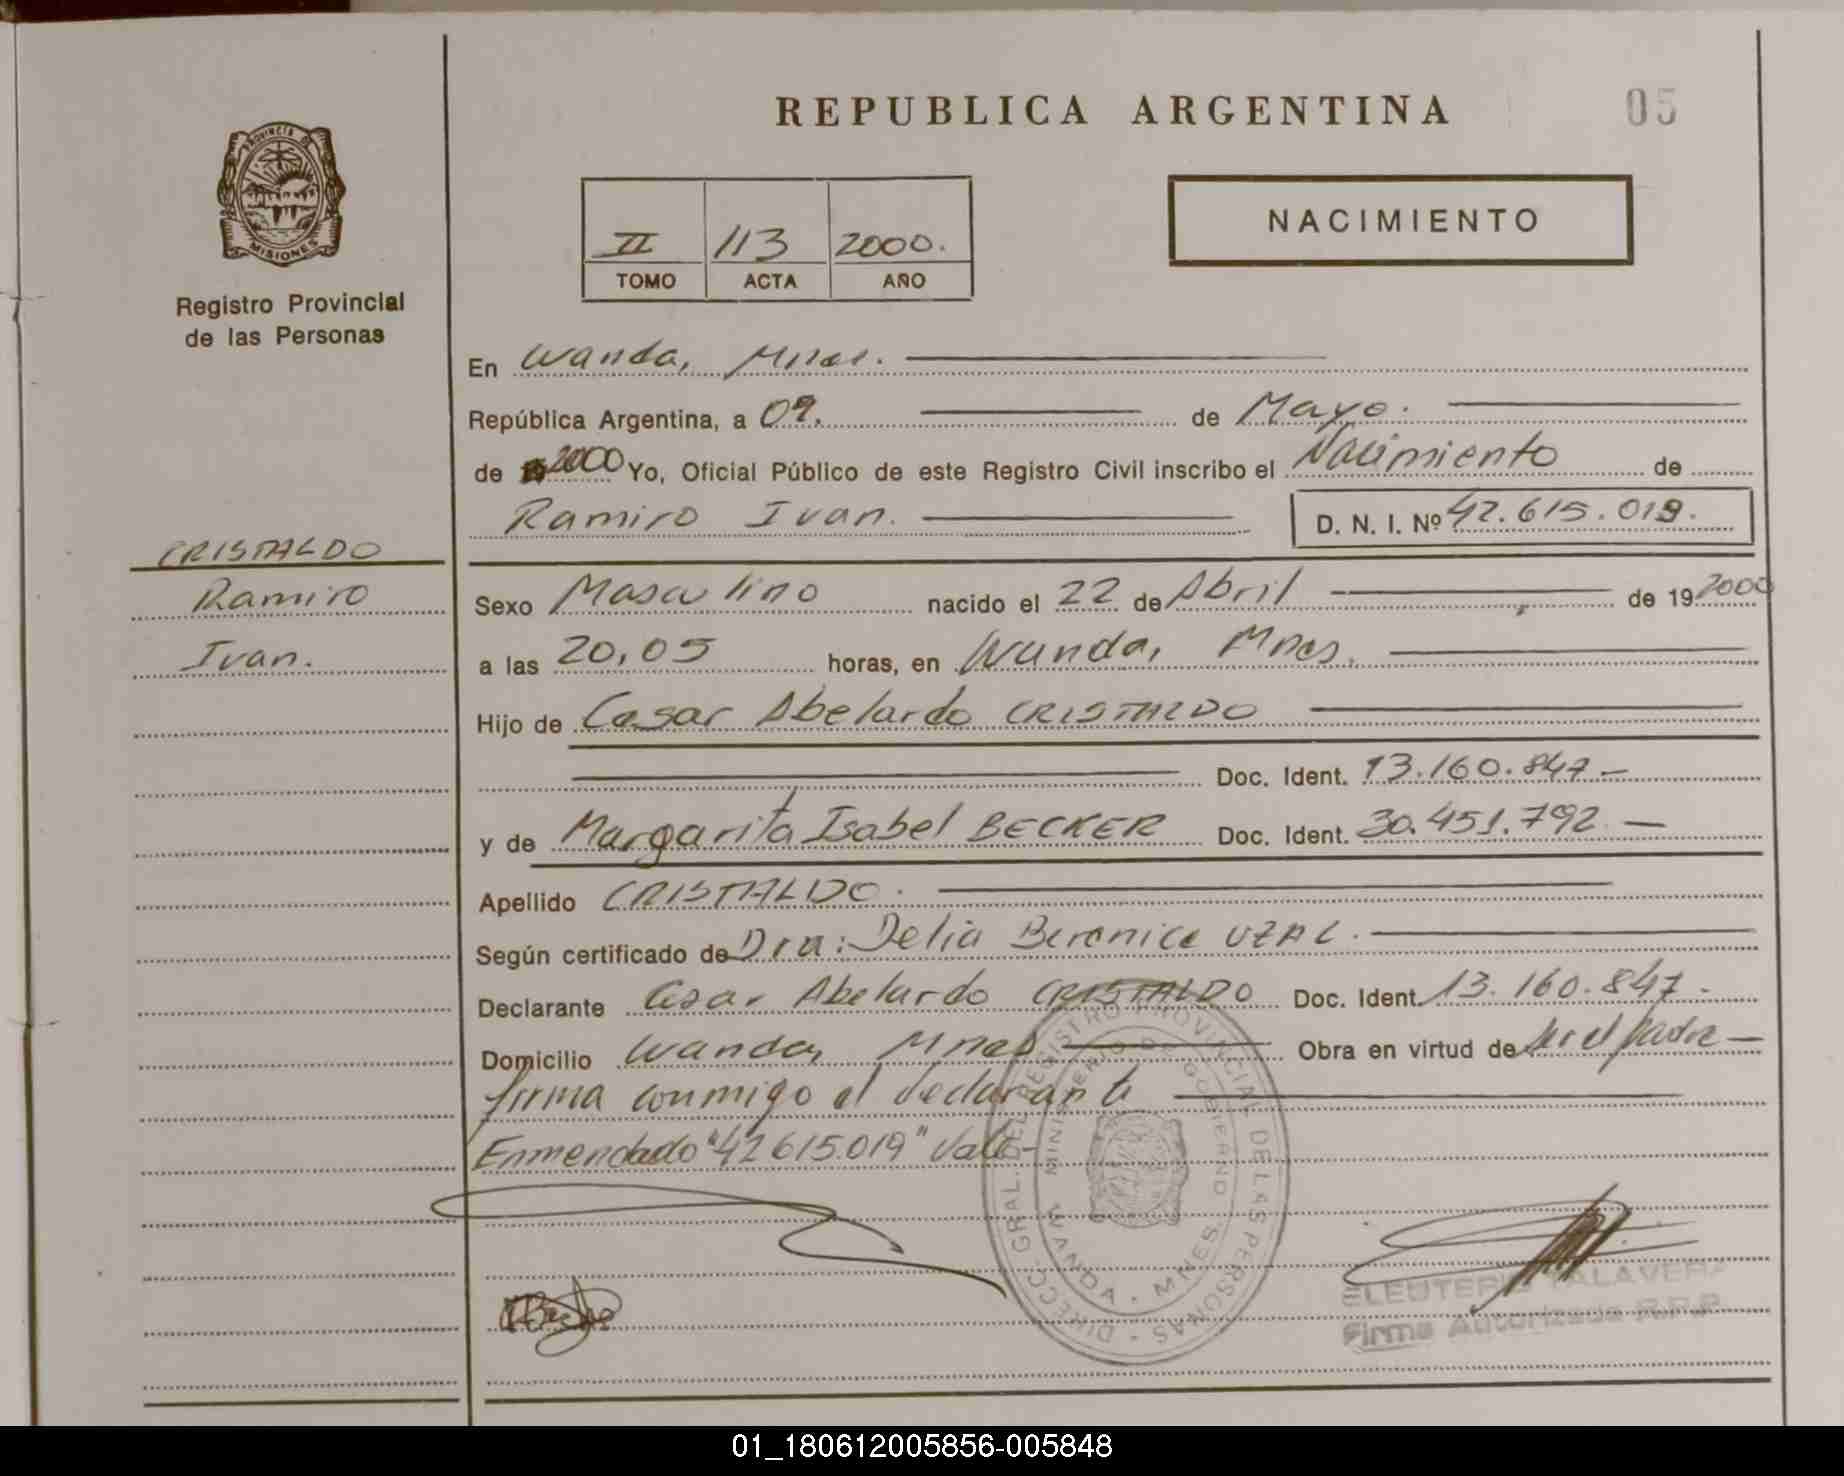 REPUBLICA ARGENTINA
05
PROVINCIA DE
MISIONES
Registro Provincial
de las Personas
II 113 2000.
TOMO ACTA AÑO
NACIMIENTO
En Wanda, Mnes.
República Argentina, a 09. de Mayo.
de 2000 Yo, Oficial Público de este Registro Civil inscribo el Nacimiento de
Ramiro Ivan. D. N. I. Nº 42.615.019.
CRISTALDO
Ramiro
Ivan.
Sexo Masculino nacido el 22 de Abril de 19 2000
a las 20,05 horas, en Wanda, Mnes.
Hijo de Cesar Abelardo CRISTALDO
Doc. Ident. 13.160.847 -
y de Margarita Isabel BECKER Doc. Ident. 30.451.792 -
Apellido CRISTALDO.
Según certificado de Dra: Delia Berenice UZAL.
Declarante Cesar Abelardo CRISTALDO Doc. Ident. 13.160.847.
Domicilio Wanda, Mnes Obra en virtud de ser el padre -
firma conmigo el declarante
Enmendado "42615.019" Vale-
DIRECC. GRAL. DEL REGISTRO PROVINCIAL DE LAS PERSONAS
MINISTERIO DE GOBIERNO
WANDA - MNES.
ELEUTERIO TALAVERA
Firma Autorizada R.P.P.
01_180612005856-005848